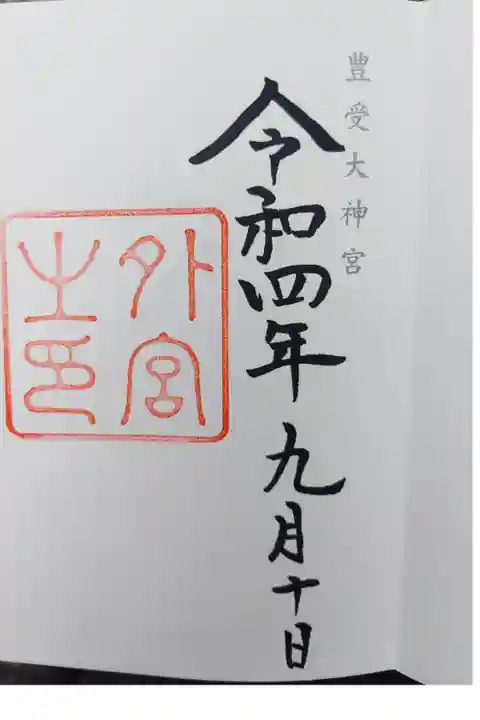 豊受大神宮
令和四年九月十日
外宮
之印